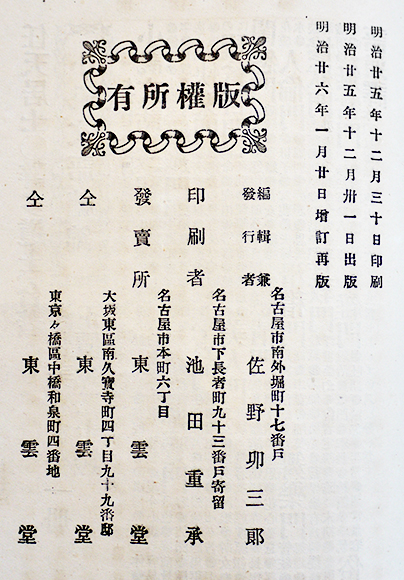 明治廿五年十二月三十日印刷
明治廿五年十二月卅一日出版
明治廿六年一月廿日增訂再版
版權所有
編輯兼
發行者
名古屋市南外堀町十七番戶
佐野卯三郞
印刷者
名古屋市下長者町九十三番戶寄留
池田重承
發賣所
名古屋市本町六丁目
東雲堂
仝
大坂東區南久寶寺町四丁目九十九番邸
東雲堂
仝
東京々橋區中橋和泉町四番地
東雲堂